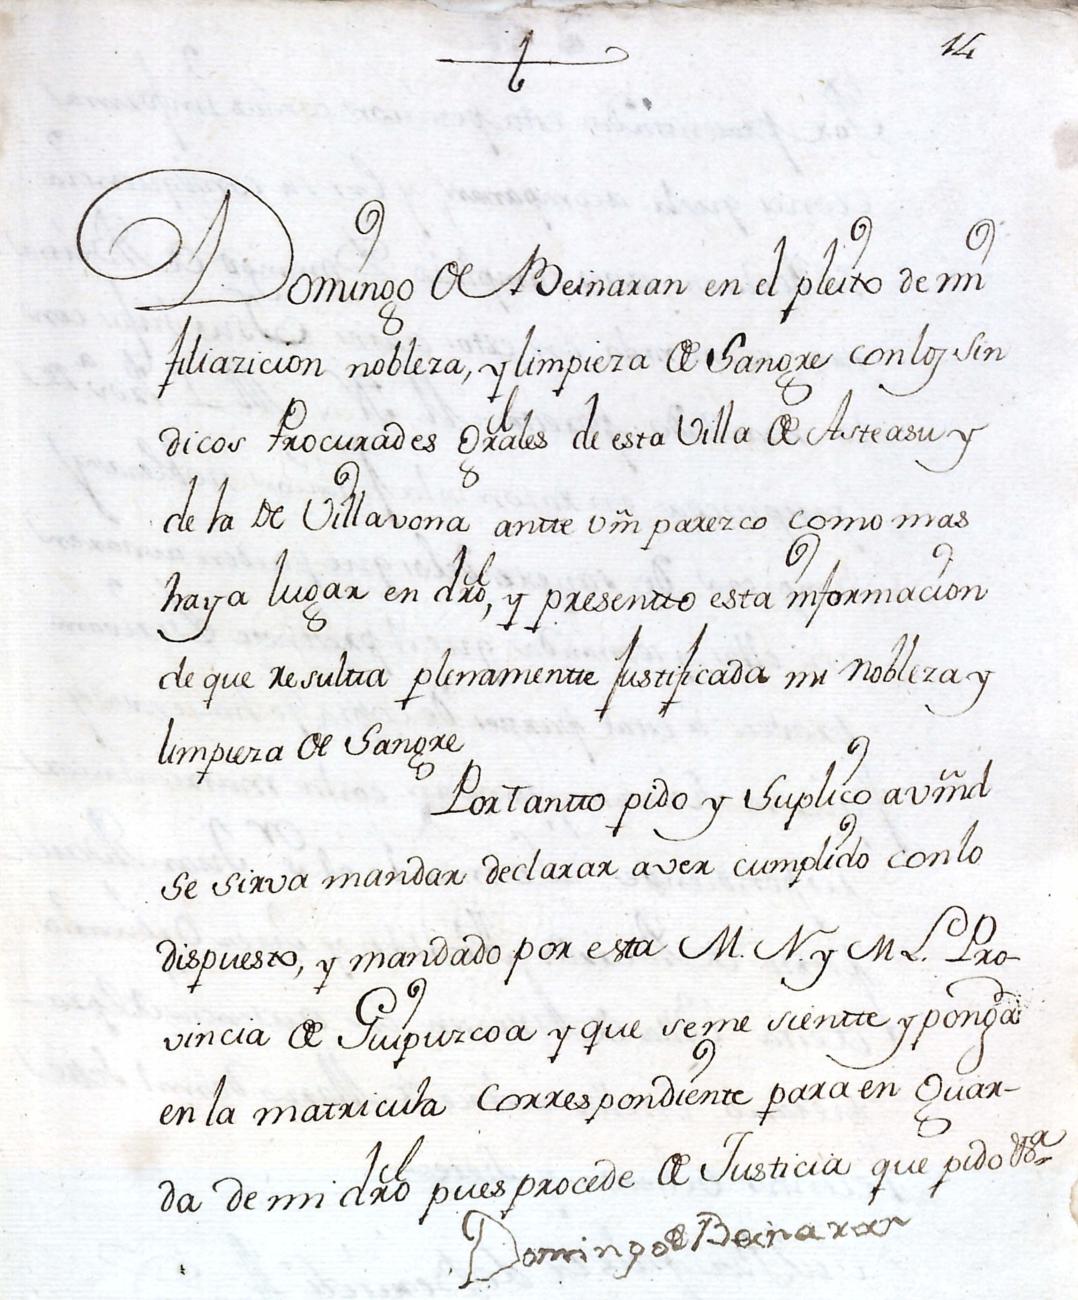 14
Domingo de Beinaran en el pleito de mi
filiazicion nobleza, y limpieza de Sangre con los Sin
dicos Procurad.es Grāles de esta Villa de Asteasu y
de la de Villavona antte vm̃ parezco como mas
haya lugar en dr̃o, y presentto esta informacion
de que resultta plenamentte justificada mi nobleza y
limpieza de Sangre
Por tantto pido y Suplico a vm̃d
se sirva mandar declarar aver cumplido con lo
dispuesto, y mandado por esta M. N. y M L. Pro-
vincia de Guipuzcoa y que seme sientte y ponga
en la matricula Correspondientte para en Guar-
da de mi dr̃o pues procede de Justicia que pido &a
Domingo de Beinaran